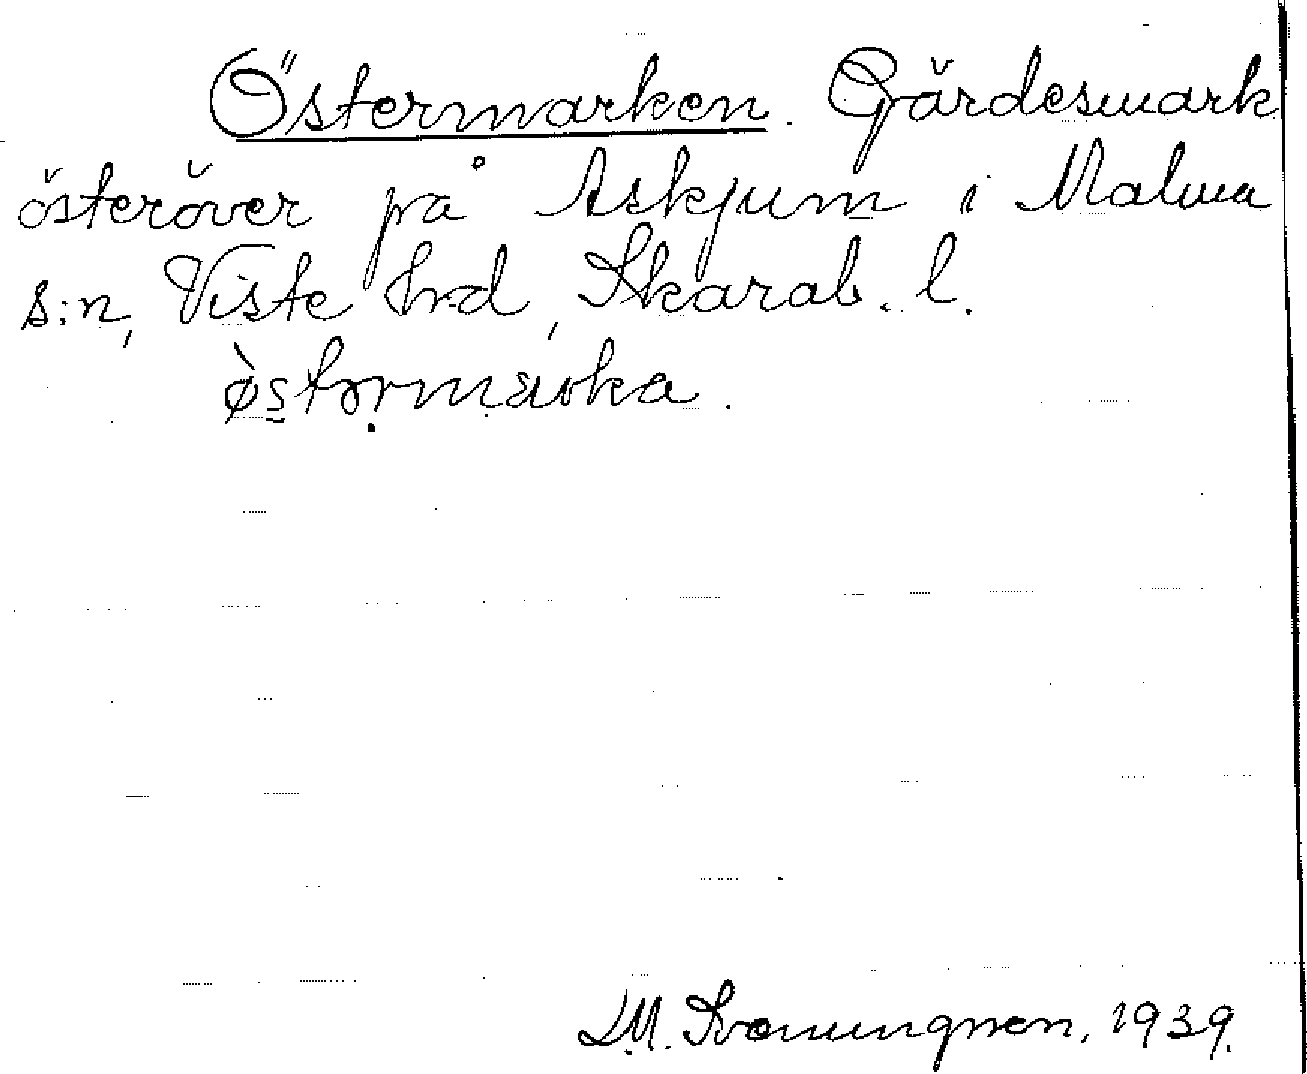 Östermarken. Gärdesmark
österöver på Askjum i Malma
s:n, Viste hrd, Skarab. l.
1939.